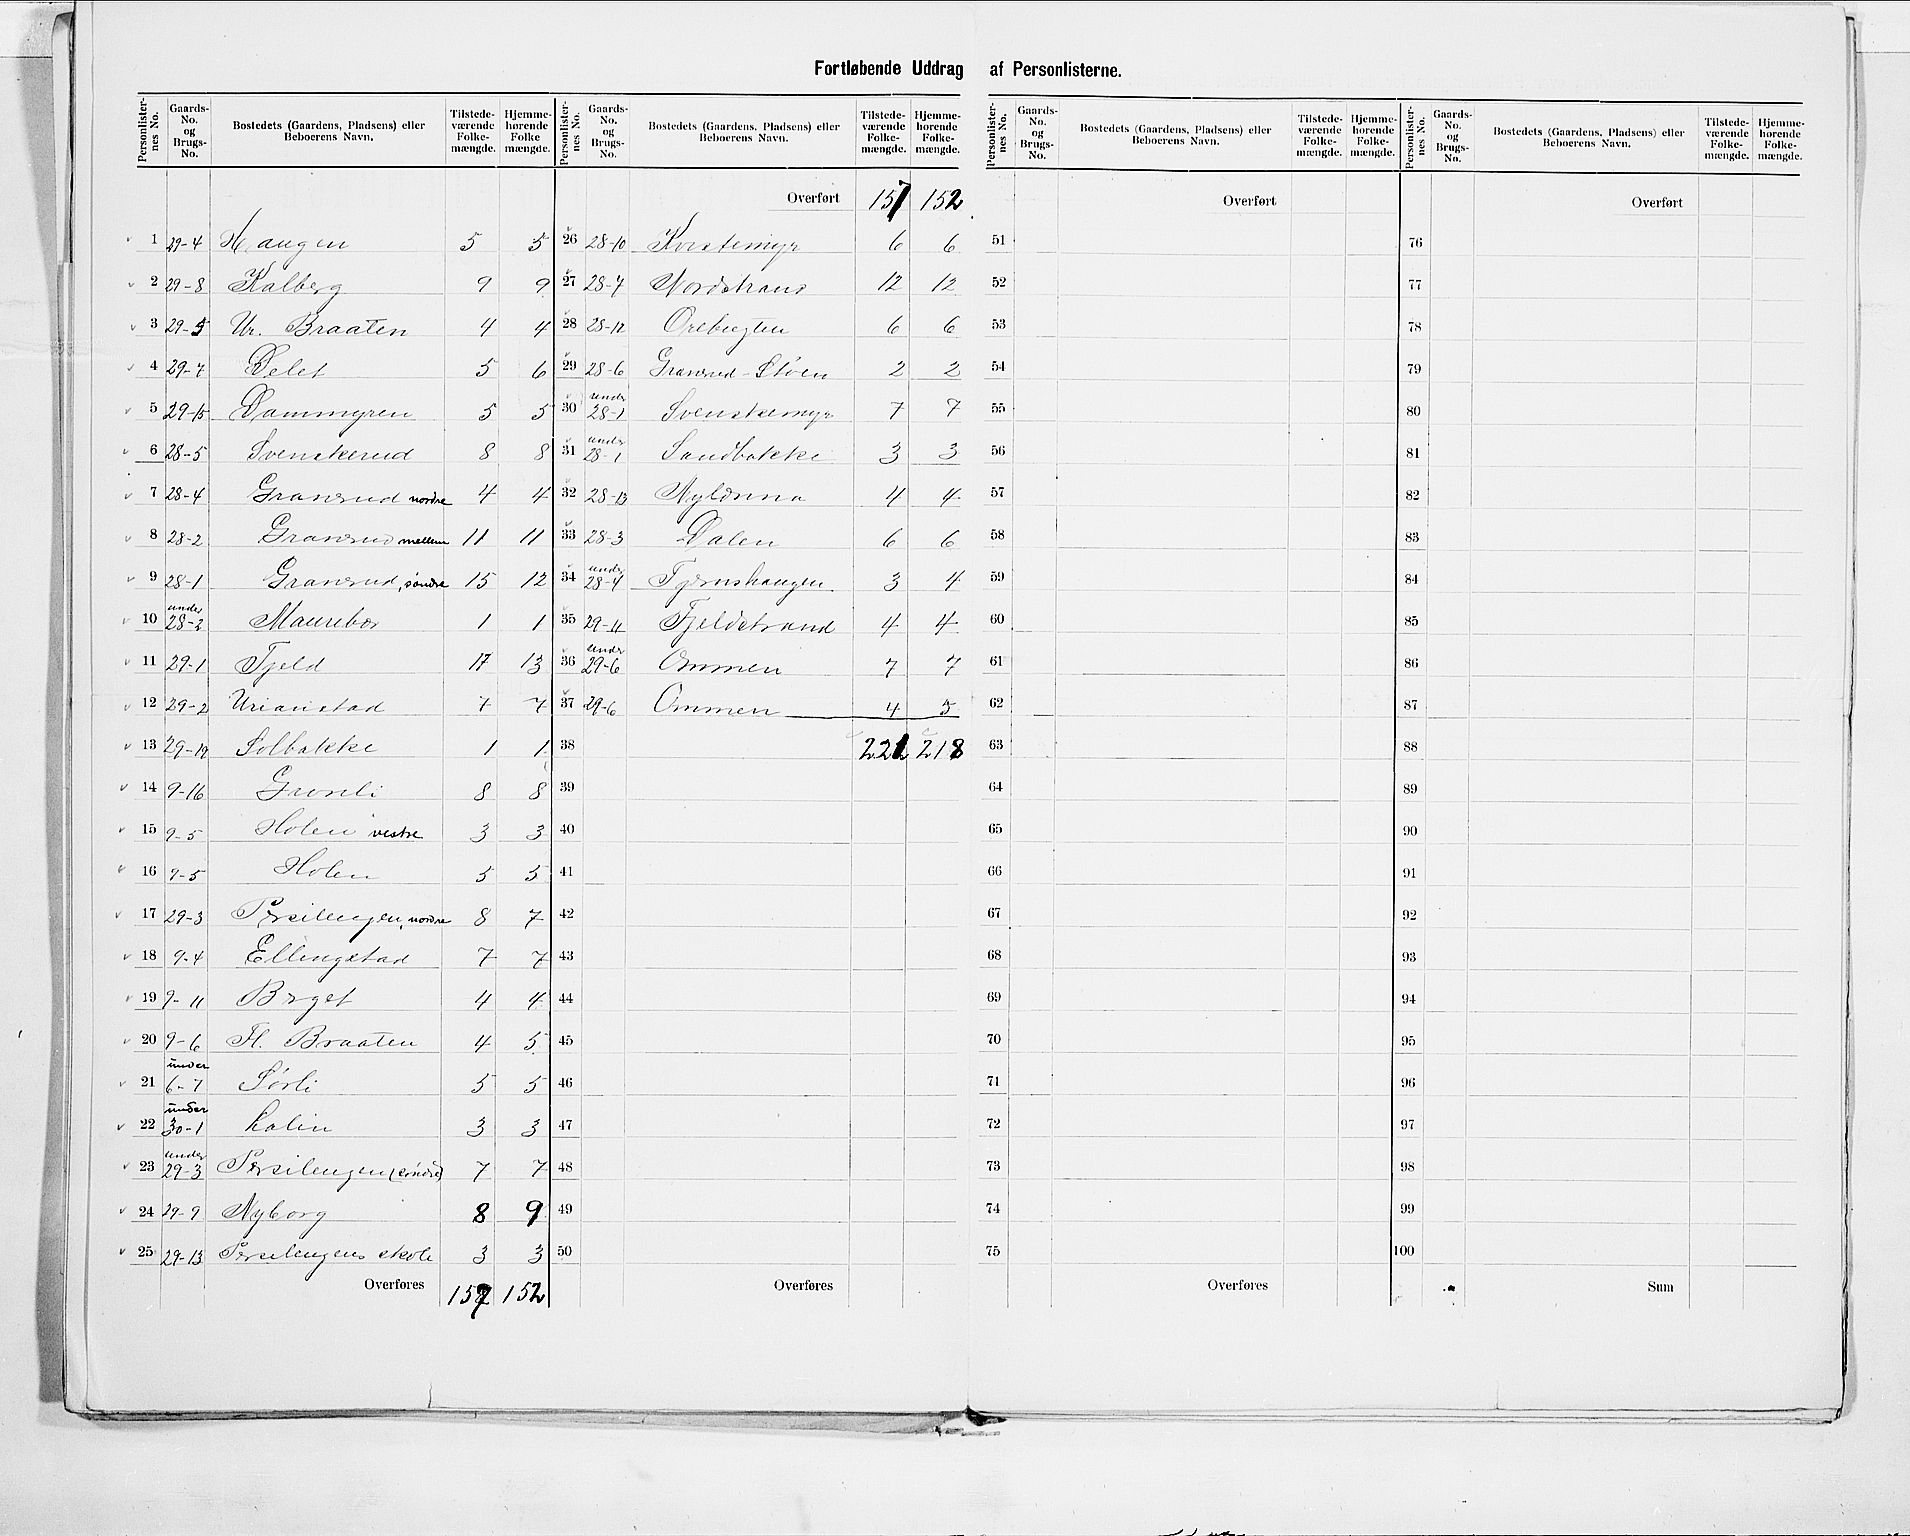 Fortløbende Uddrag af Personlisterne.
Personlister-nes No. Gaards-No. og Brugs-No. Bostedets (Gaardens, Pladsens) eller Beboerens Navn. Tilstede-værende Folke-mængde. Hjemme-hørende Folke mængde.
1 29-4 Haugen 5 5
2 29-8 Kalberg 9 9
3 29-5 Ur. Braaten 4 4
4 29-7 Delet 5 6
5 29-15 Dammyren 5 5
6 28-5 Svenskerud 8 8
7 28-4 Gransrud nordre 4 4
8 28-2 Gransrud mellem 11 11
9 28-1 Gransrud, søndre 15 12
10 under 28-2 Maurebær 1 1
11 29-1 Fjeld 17 13
12 29-2 Urianstad 7 7
13 29-19 Solbakke 1 1
14 9-16 Grønli 8 8
15 9-5 Holen vestre 3 3
16 9-5 Holen 5 5
17 29-3 Persilengen, nordre 8 7
18 9-4 Ellingstad 7 7
19 9-11 Berget 4 4
20 9-6 Fl. Braaten 4 5
21 under 6-7 Sørli 5 5
22 under 30-1 3 3
23 under 29-3 Persilengen (søndre) 7 7
24 29-9 Nyborg 8 9
25 29-13 Persilengens skole 3 3
Overføres 157 152
Personlister-nes No. Gaards-No. og Brugs-No. Bostedets (Gaardens, Pladsens) eller Beboerens Navn. Tilstede-værende Folke-mængde. Hjemme-hørende Folke-mængde.
Overført 157 152
26 28-10 Kvistemyr 6 6
27 28-7 Nordstrand 12 12
28 28-12 Orebugten 6 6
29 28-6 Gransrud-Støen 2 2
30 under 28-1 Svenskemyr 7 7
31 under 28-1 Sandbakke 3 3
32 28-13 Nylænna 4 4
33 28-3 Dalen 6 6
34 under 28-4 Tjernshaugen 3 4
35 29-11 Fjeldstrand 4 4
36 under 29-6 Ommen 7 7
37 29-6 Ommen 4 5
38 221 218
39
40
41
42
43
44
45
46
47
48
49
50
Overføres
Personlister-nes No. Gaards-No. og Brugs-No. Bostedets (Gaardens, Pladsens) eller Beboerens Navn. Tilstede-værende Folke-mængde. Hjemme-hørende Folke-mængde.
Overført
51
52
53
54
55
56
57
58
59
60
61
62
63
64
65
66
67
68
69
70
71
72
73
74
75
Overføres
Personlister-nes No. Gaards-No. og Brugs-No. Bostedets (Gaardens, Pladsens) eller Beboerens Navn. Tilstede-værende Folke-mængde. Hjemme-hørende Folke-mængde.
Overført
76
77
78
79
80
81
82
83
84
85
86
87
88
89
90
91
92
93
94
95
96
97
98
99
100
Sum